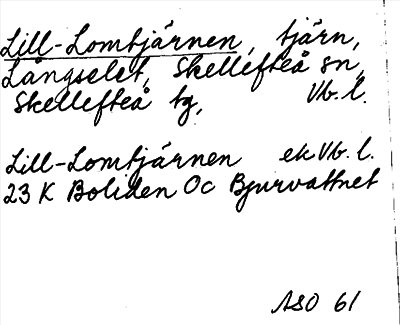 Lill-Lomtjärnen, tjärn,
Långselet, Skellefteå sn,
Skellefteå tg, Vb. l.
Lill-Lomtjärnen ek Vb. l.
23 K Boliden Oc Bjurvattnet
ASO 61